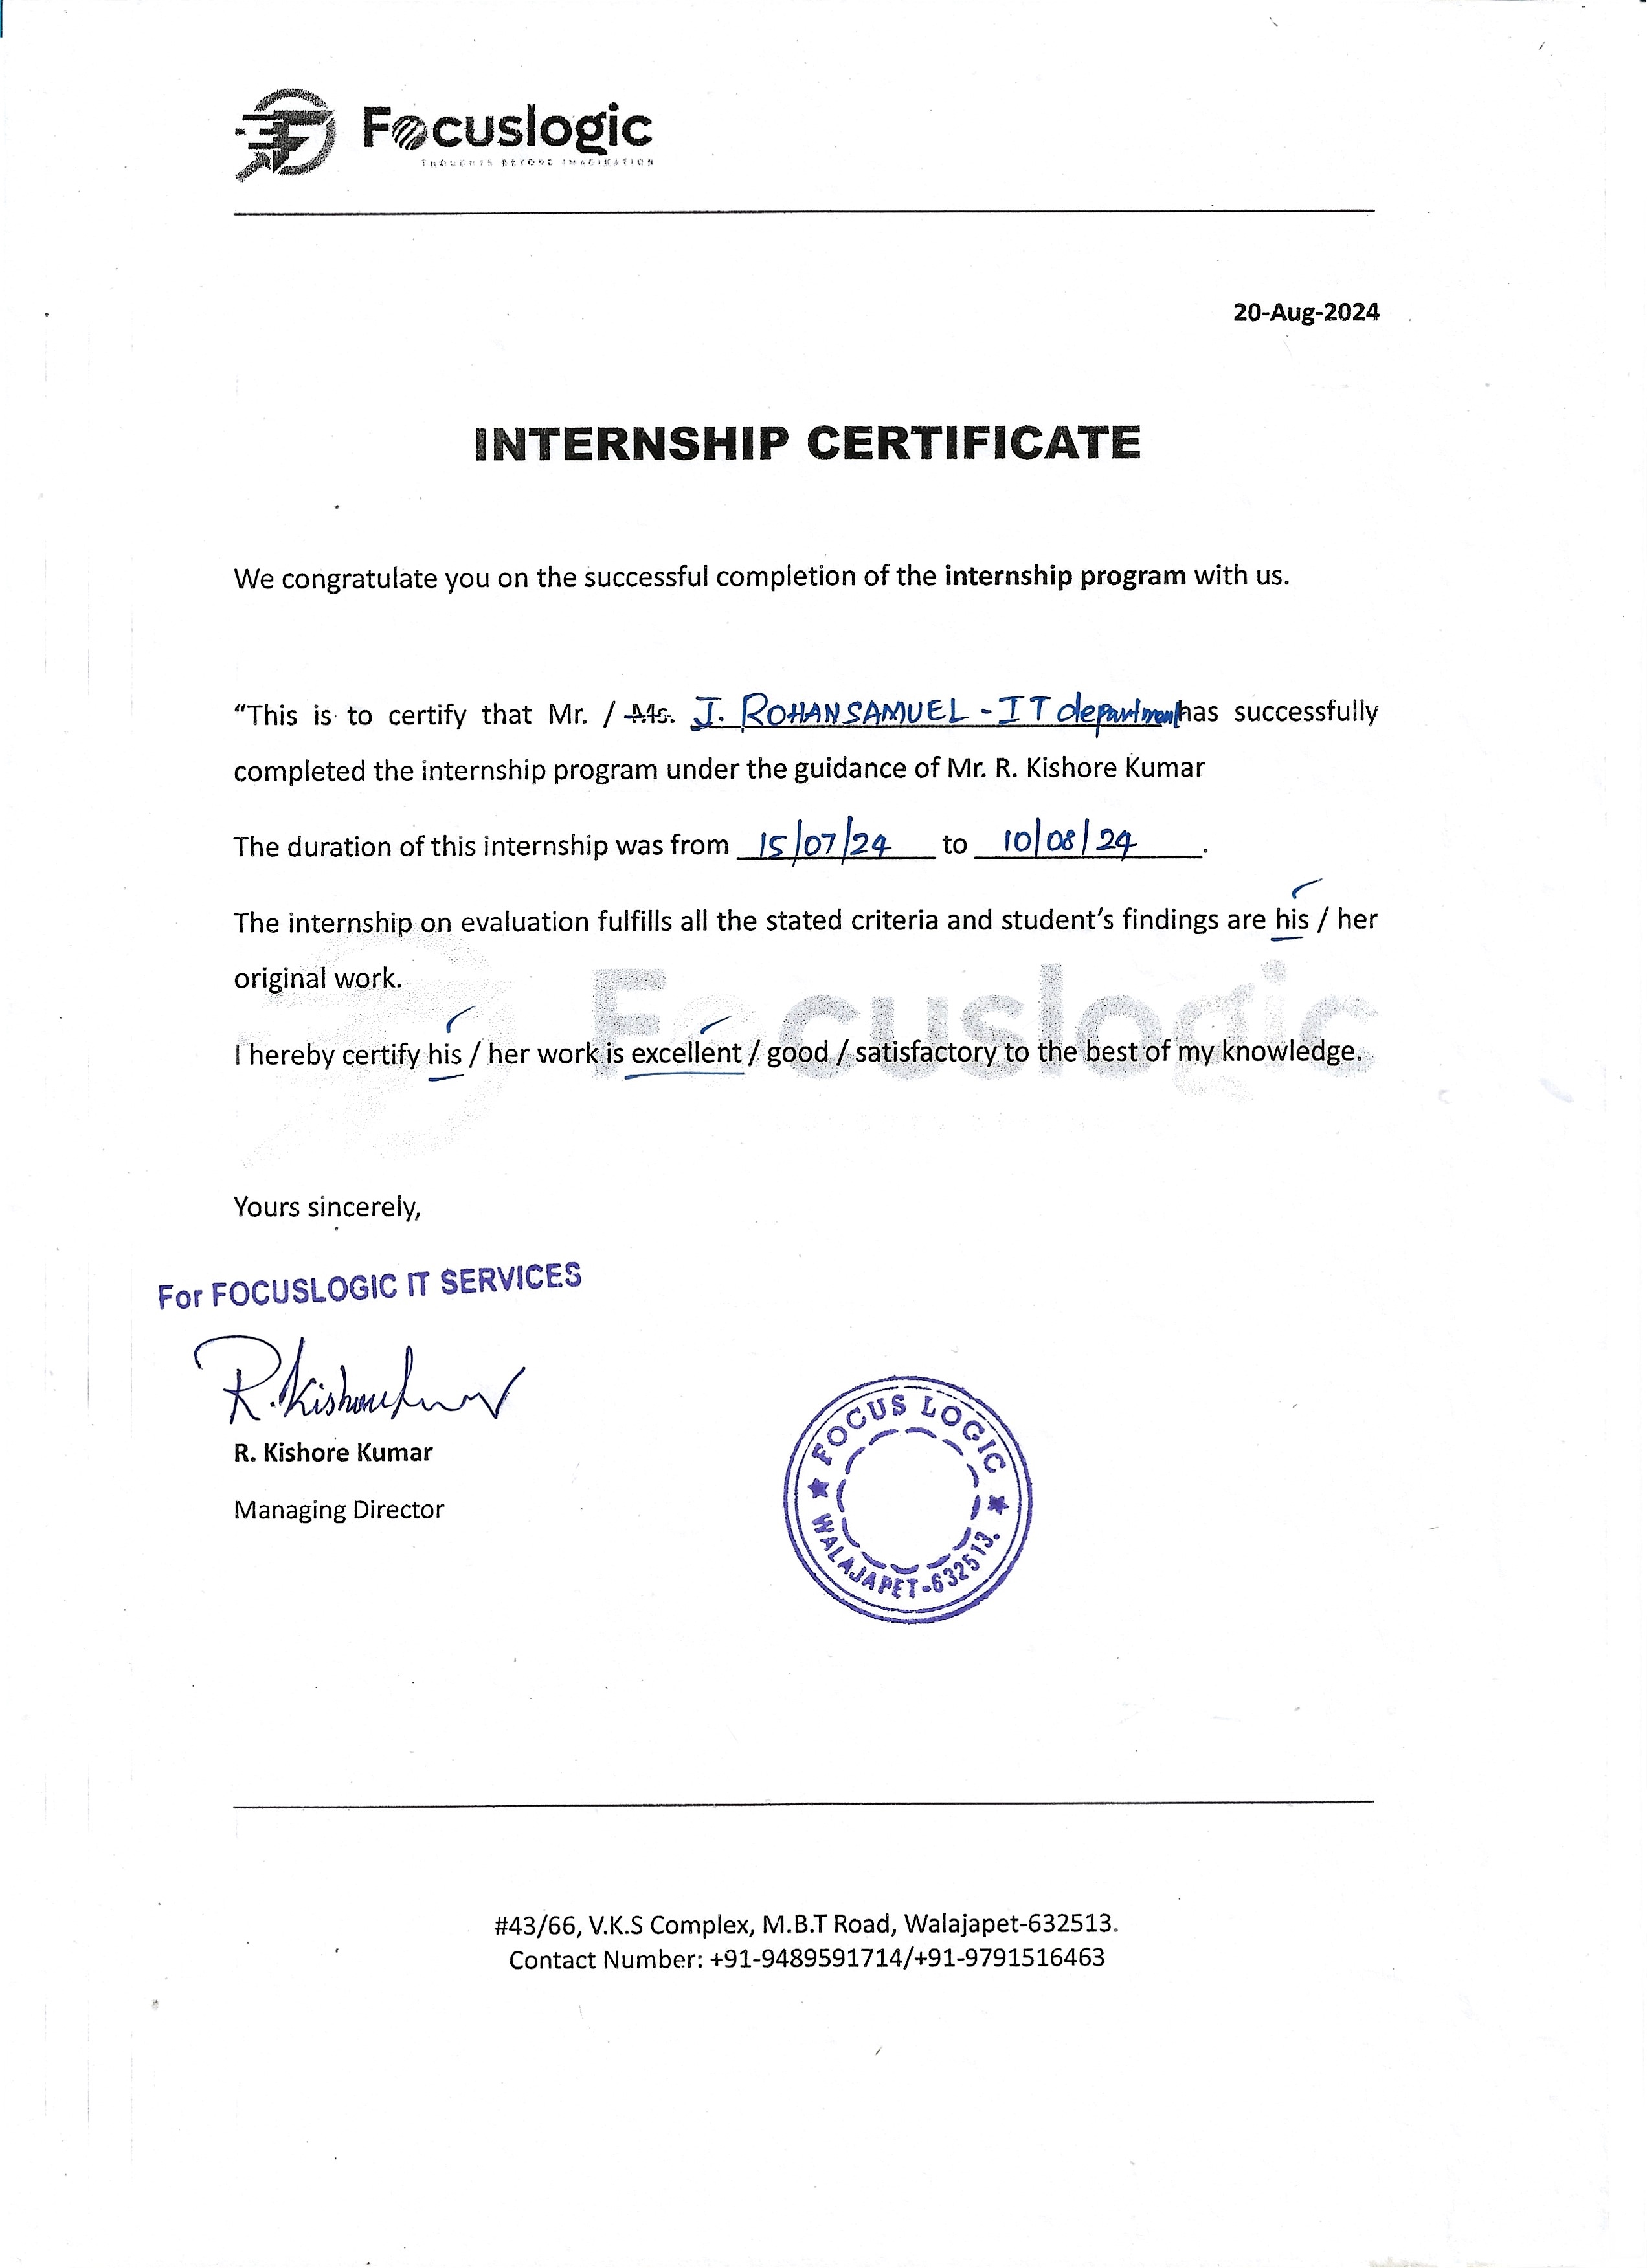 Focuslogic
THOUGHTS BEYOND IMAGINATION
20-Aug-2024
INTERNSHIP CERTIFICATE
We congratulate you on the successful completion of the internship program with us.
“This is to certify that Mr. / Ms. J. ROHANSAMUEL - IT department has successfully
completed the internship program under the guidance of Mr. R. Kishore Kumar
The duration of this internship was from 15/07/24 to 10/08/24.
The internship on evaluation fulfills all the stated criteria and student’s findings are his / her
original work.
Focuslogic
I hereby certify his / her work is excellent / good / satisfactory to the best of my knowledge.
Yours sincerely,
For FOCUSLOGIC IT SERVICES
R. Kishore Kumar
R. Kishore Kumar
Managing Director
FOCUS LOGIC
WALAJAPET-632513.
#43/66, V.K.S Complex, M.B.T Road, Walajapet-632513.
Contact Number: +91-9489591714/+91-9791516463